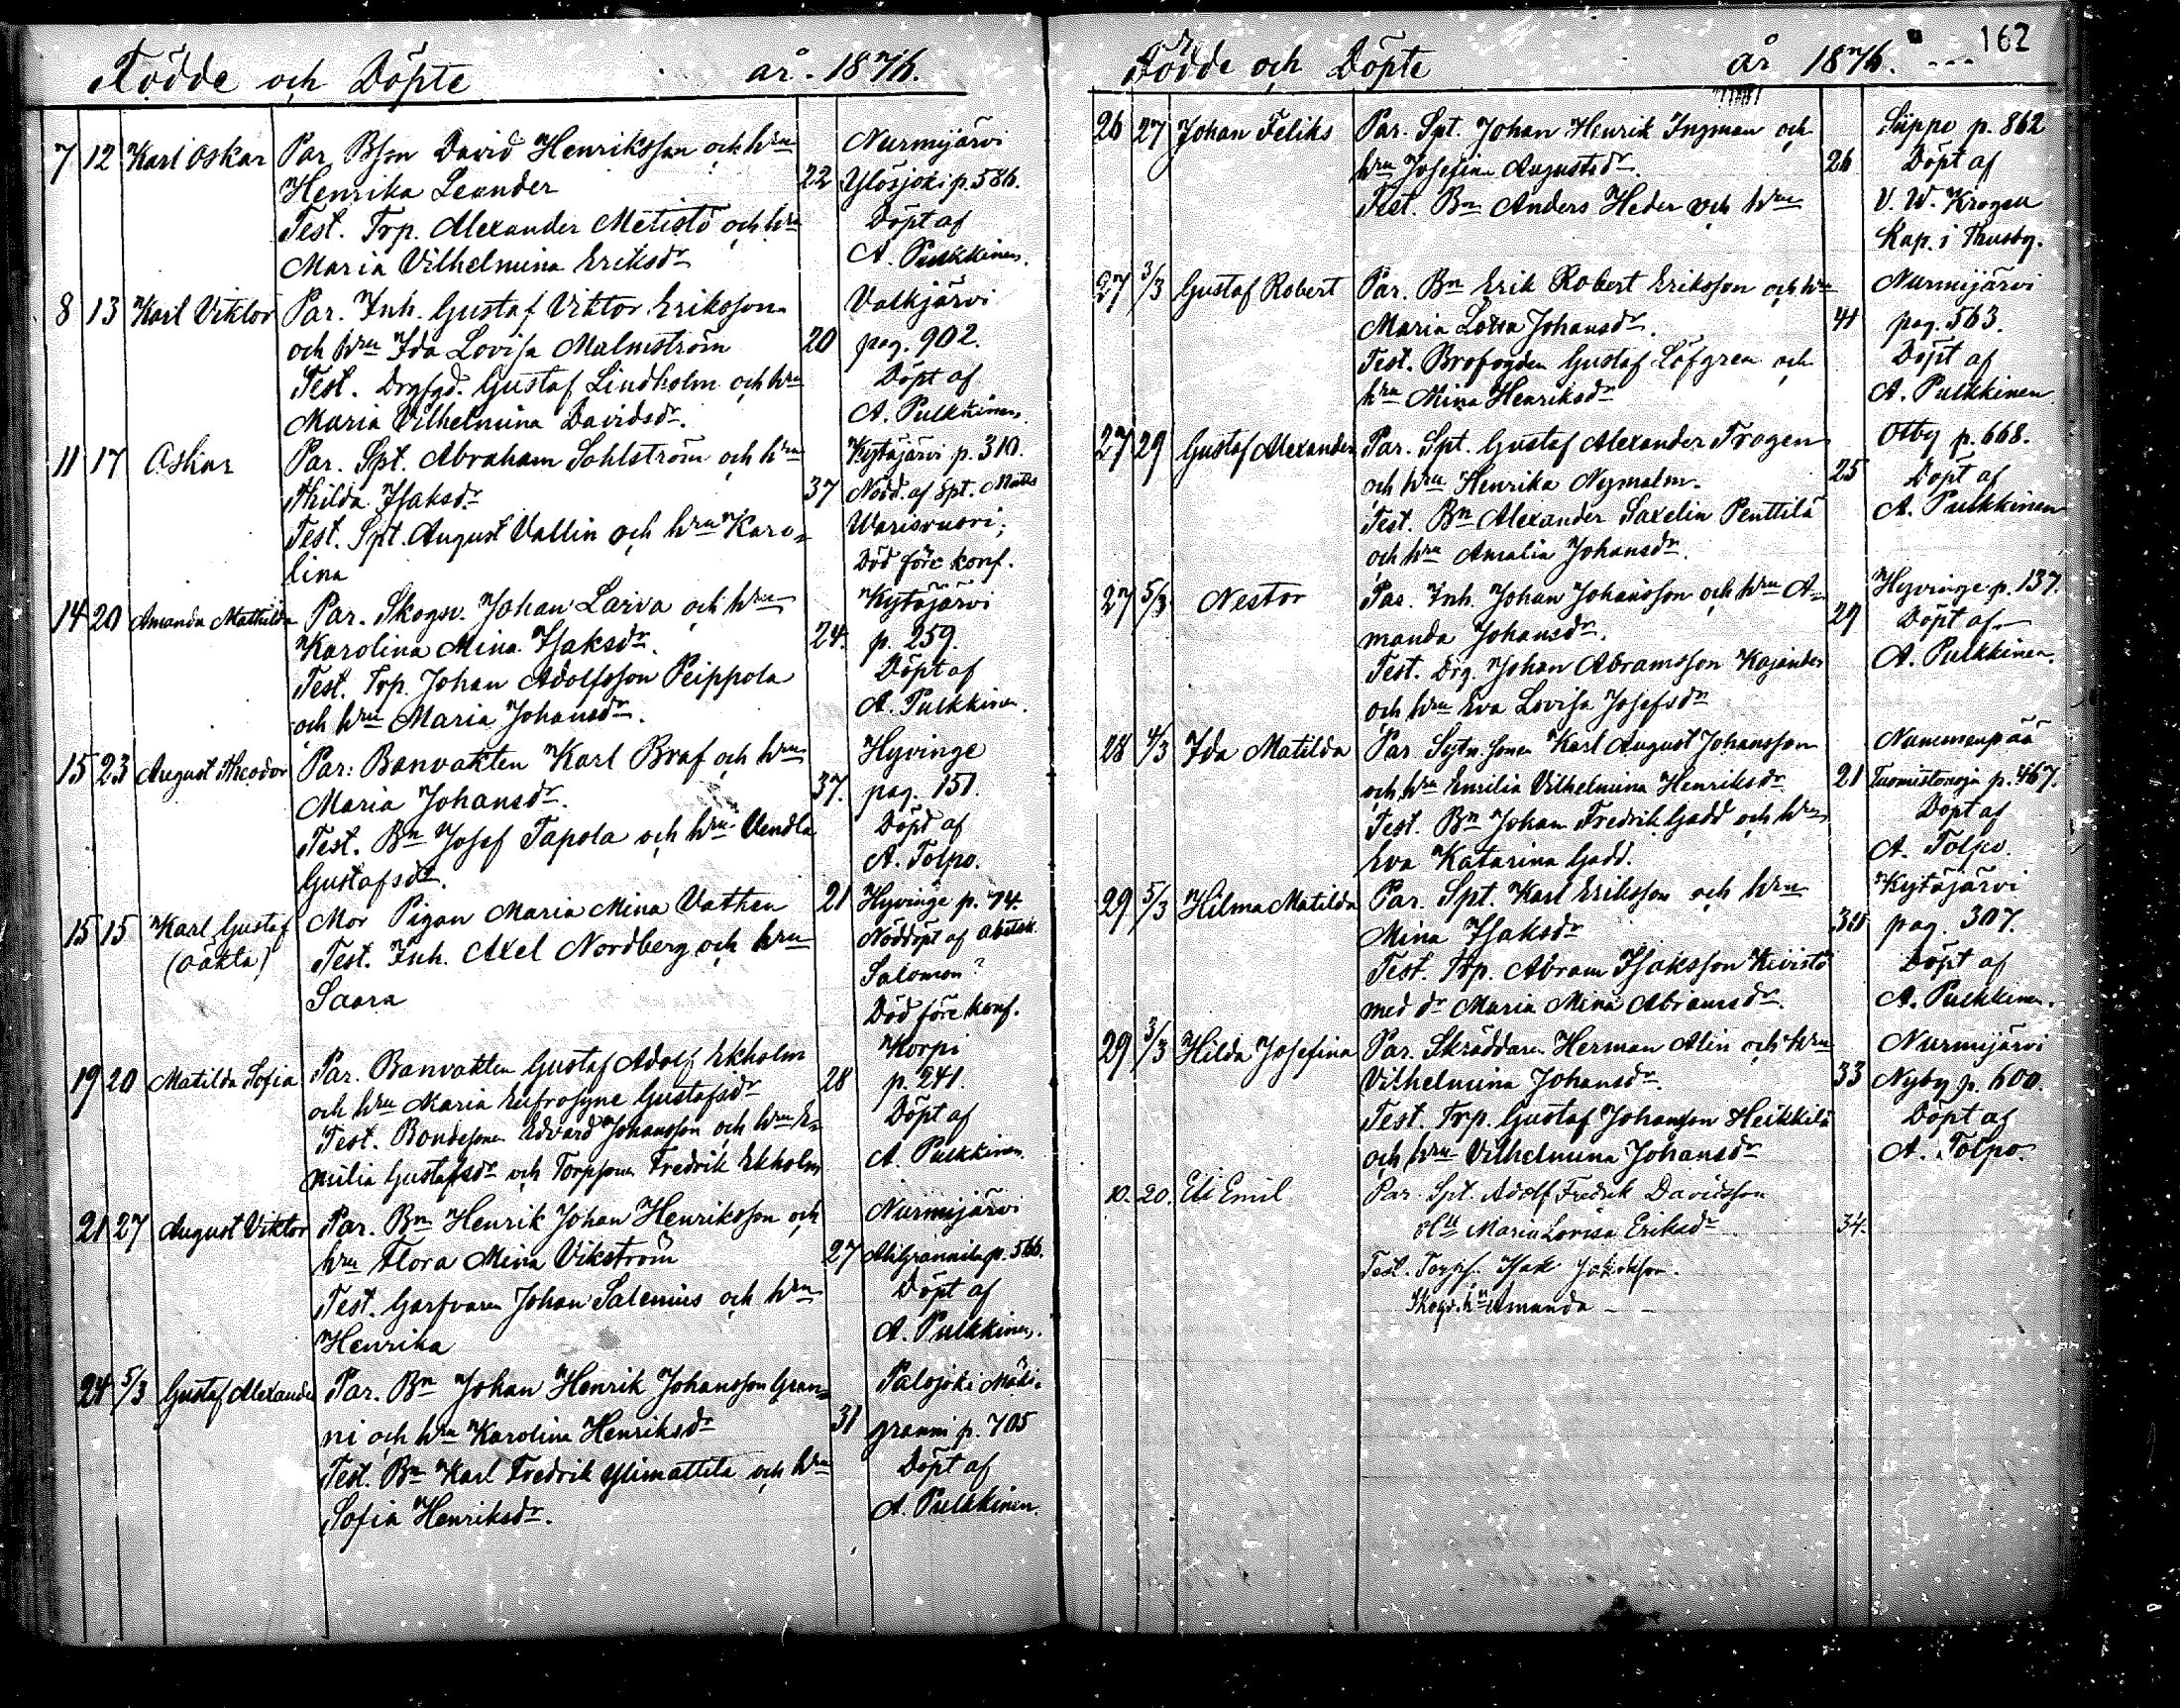 Födde och Döpte år 1876.
7 12 Karl Oskar Par. Bson David Henriksson och hru Nurmijärvi
Henrika Leander 22 Ylösjoki p. 586.
Test. Trp. Alexander Metistö och hru Döpt af
Maria Vilhelmina Eriksdr A. Pulkkinen.
8 13 Karl Viktor Par. Inh. Gustaf Viktor Eriksson Valkjärvi
och hru Ida Lovisa Malmström 20 pag. 902.
Test. Drgfgd. Gustaf Lindholm och hru Döpt af
Maria Vilhelmina Davidsdr. A. Pulkkinen.
11 17 Oskar Par. Spt. Abraham Sohlström och hru Kytäjärvi p. 310.
Thilda Isaksdr 37 Nödd. af Spt. Matts
Test. Spt. August Vallin och hru Karo- Warisvuori;
lina Död före konf.
14 20 Amanda Mathilda Par. Skogsv. Johan Larva och hru Kytäjärvi
Karolina Mina Isaksdr. 24. p. 259.
Test. Trp. Johan Adolfsson Peippola Döpt af
och hru Maria Johansdr. A. Pulkkinen.
15 23 August Theodor Par: Banvakten Karl Braf och hru Hyvinge
Maria Johansdr. 37. pag. 151.
Test. Bn Josef Tapola och hru Vendla Döpt af
Gustafsdr. A. Tolpo.
15 15 Karl Gustaf Mor Pigan Maria Mina Vathen 21 Hyvinge p. 74.
(oäkta) Test. Inh. Axel Nordberg och hru Nöddöpt af
Saara Salomon?
Död före konf.
19 20 Matilda Sofia Par. Banvakten Gustaf Adolf Ekholm Korpi
och hru Maria Eufrosyne Gustafsdr 28 p. 241.
Test. Bondesonen Edvard Johansson och hru E- Döpt af
milia Gustafsdr och Torpsonen Fredrik Ekholm A. Pulkkinen.
21 27 August Viktor Par. Bn Henrik Johan Henriksson och Nurmijärvi
hru Flora Mina Vikström 27 p. 566.
Test. Garfvaren Johan Salenius och hru Döpt af
Henrika A. Pulkkinen.
24 5/3 Gustaf Alexander Par. Bn Johan Henrik Johansson Gran- Palojoki Mäki-
ni och hru Karolina Henriksdr 31 granni p. 705
Test. Bn Karl Fredrik Ylimattila och hru Döpt af
Sofia Henriksdr. A. Pulkkinen.
162
Födde och Döpte år 1876.
26 27 Johan Feliks Par. Spt. Johan Henrik Ingman och Siippo p. 862
hru Josefina Augustsdr. 26 Döpt af
Test. Bn Anders Heder och hru V. W. Krogell
Kap. i Thusby.
27 3/3 Gustaf Robert Par. Bn Erik Robert Eriksson och hru Nurmijärvi
Maria Lovisa Johansdr. 41 pag. 563.
Test. Brofogden Gustaf Löfgren och Döpt af
hru Mina Henriksdr A. Pulkkinen
27 29 Gustaf Alexander Par. Spt. Gustaf Alexander Trogen Otby p. 668.
och hru Henrika Nymalm. 25 Döpt af
Test. Bn Alexander Saxelin Penttilä A. Pulkkinen
och hru Amalia Johansdr.
27 5/3 Nestor Par. Inh. Johan Johansson och hru A- Hyvinge p. 137.
manda Johansdr. 29 Döpt af
Test. Drg. Johan Abramsson Kajander A. Pulkkinen.
och hru Eva Lovisa Josefsdr
28 4/3 Ida Matilda Par. Sytn.sonen Karl August Johansson Nummenpää
och hru Emilia Vilhelmina Henriksdr 21 Tuomistonoja p. 467.
Test. Bn Johan Fredrik Gadd och hru Döpt af
Eva Katarina Gadd. A. Tolpo.
29 5/3 Hilma Matilda Par. Spt. Karl Eriksson och hru Kytäjärvi
Mina Isaksdr pag. 307.
Test. Trp. Abram Isaksson Kivistö Döpt af
med dr Maria Mina Abramsdr. A. Pulkkinen.
29 3/3 Hilda Josefina Par. Skräddaren Herman Alin och hru Nurmijärvi
Vilhelmina Johansdr. 33 Nyby p. 600.
Test. Trp. Gustaf Johansson Heikkilä Döpt af
och hru Vilhelmina Johansdr A. Tolpo.
10. 20. Eli Emil Par. Spt. Adolf Fredrik Davidsson
Hu Maria Lovisa Eriksdr 34.
Test. Torps. Isak Jakobsson.
Skogv. hu Amanda